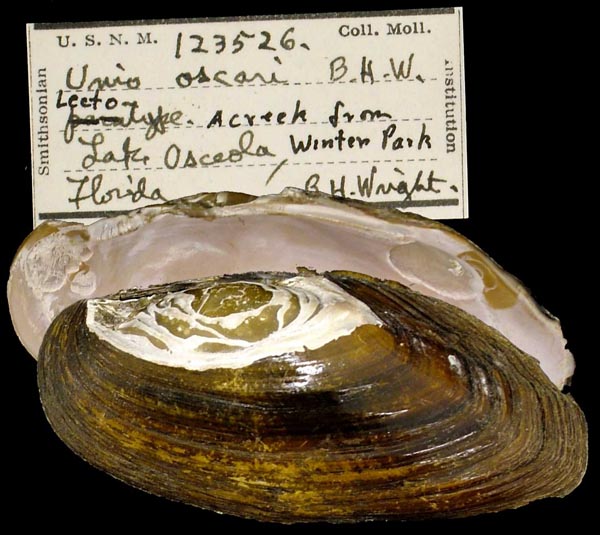 U. S. N. M. 123526. Coll. Moll.
Smithsonian
Institution
Unio oscari B.H.W.
Lecto-
paratype. A creek from
Lake Osceola, Winter Park
Florida B.H. Wright.